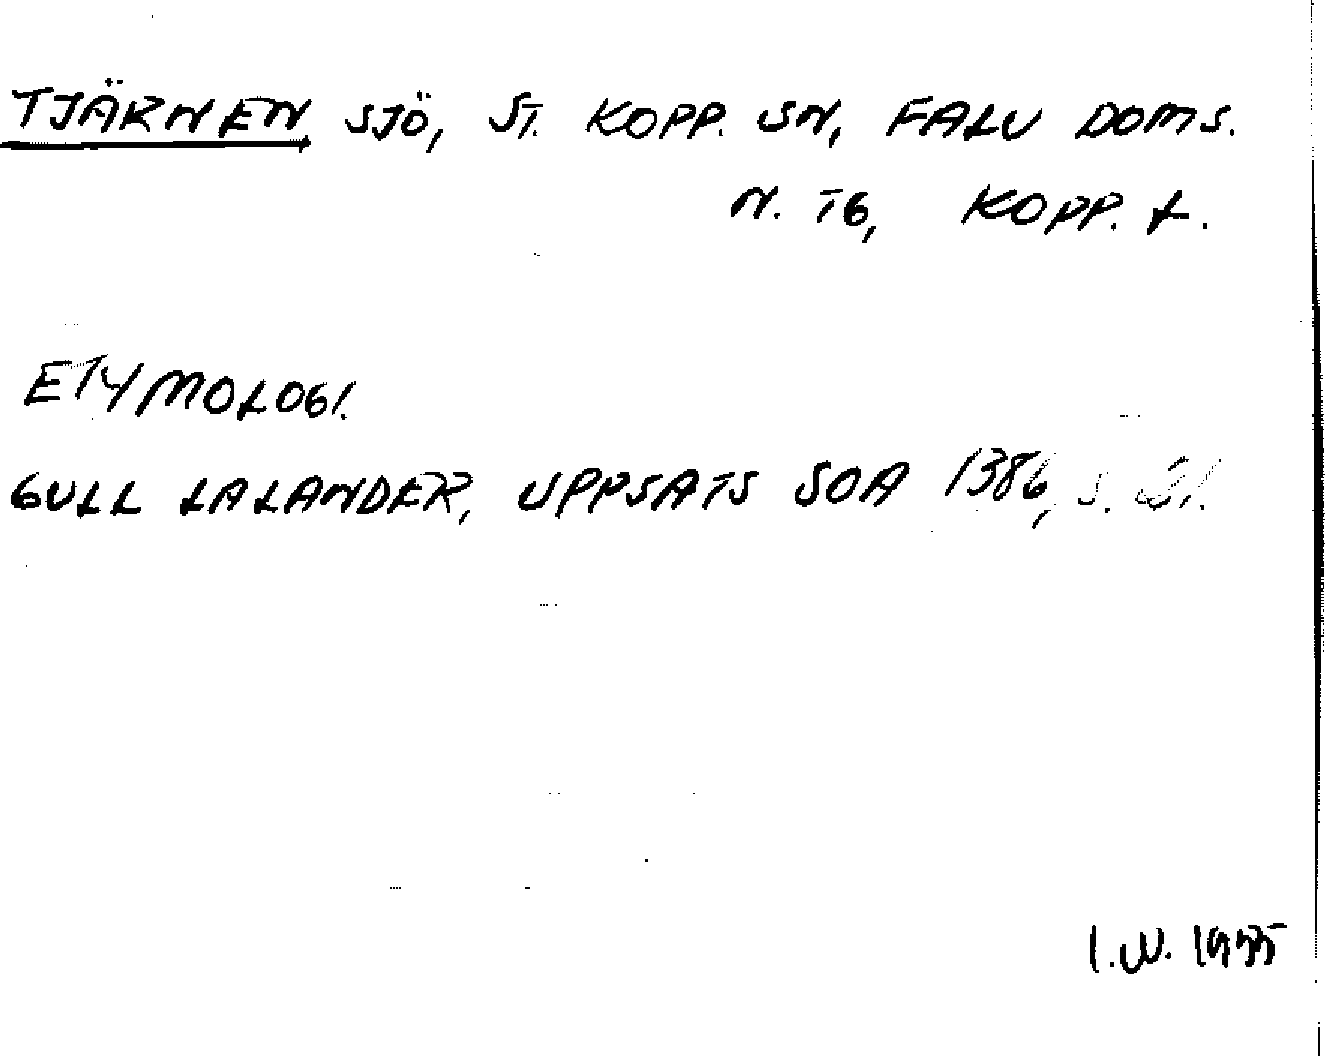 TJÄRNEN SJÖ, ST. KOPP. SN, FALU DOMS.
N. TG, KOPP. L.
ETYMOLOGI.
GULL LALANDER, UPPSATS SOA 1386, S.
I.W. 1955